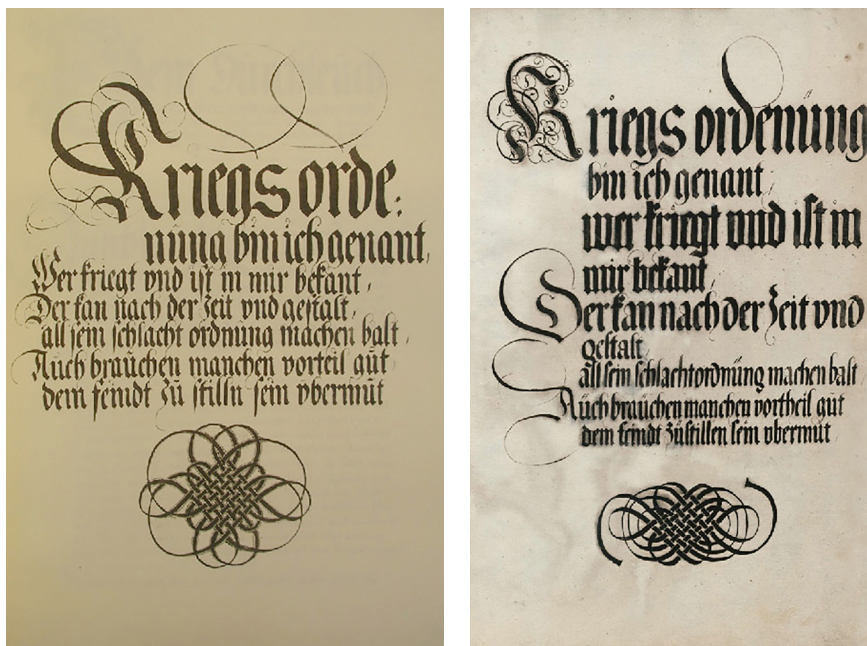 Kriegsorde:
nung bin ich genant,
Wer kriegt vnd ist in mir bekant,
Der kan nach der zeit vnd gestalt,
all sein schlacht ordnung machen balt,
Auch brauchen manchen vorteil gut
dem feindt zu stilln sein vbermut
Kriegs ordenung
bin ich genant,
wer kriegt vnd ist in
mir bekant,
Der kan nach der zeit vnd
gestalt,
all sein schlachtordnung machen balt
Auch brauchen manchen vortheil gut
dem feindt zustillen sein vbermut,